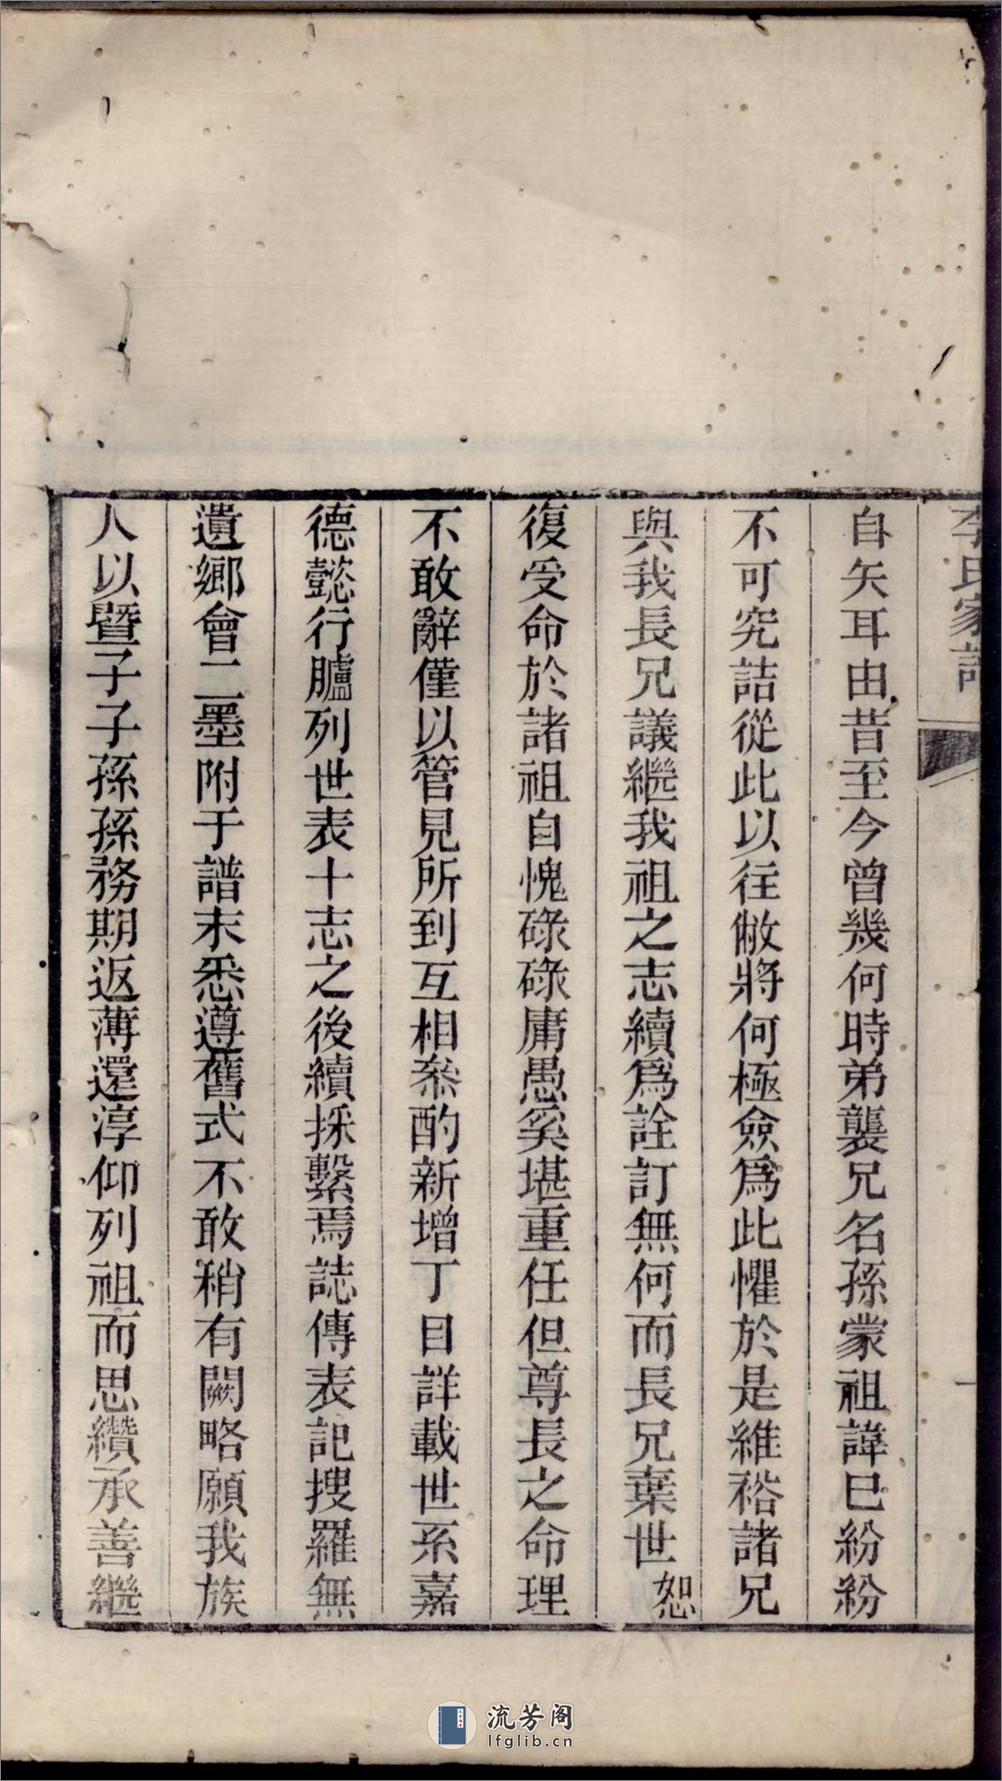 李氏家譜
自矢耳由昔至今曾幾何時弟襲兄名孫蒙祖諱巳紛紛
不可究詰從此以往敝將何極僉爲此懼於是維裕諸兄
與我長兄議繼我祖之志續爲詮訂無何而長兄棄世恕
復受命於諸祖自愧碌碌庸愚奚堪重任但尊長之命理
不敢辭僅以管見所到互相叅酌新增丁目詳載世系嘉
德懿行臚列世表十志之後續採繫焉誌傳表記搜羅無
遺鄉會二墨附于譜末悉遵舊式不敢稍有闕略願我族
人以暨子子孫孫務期返薄還淳仰列祖而思纘承善繼
流芳阁
lfglib.cn